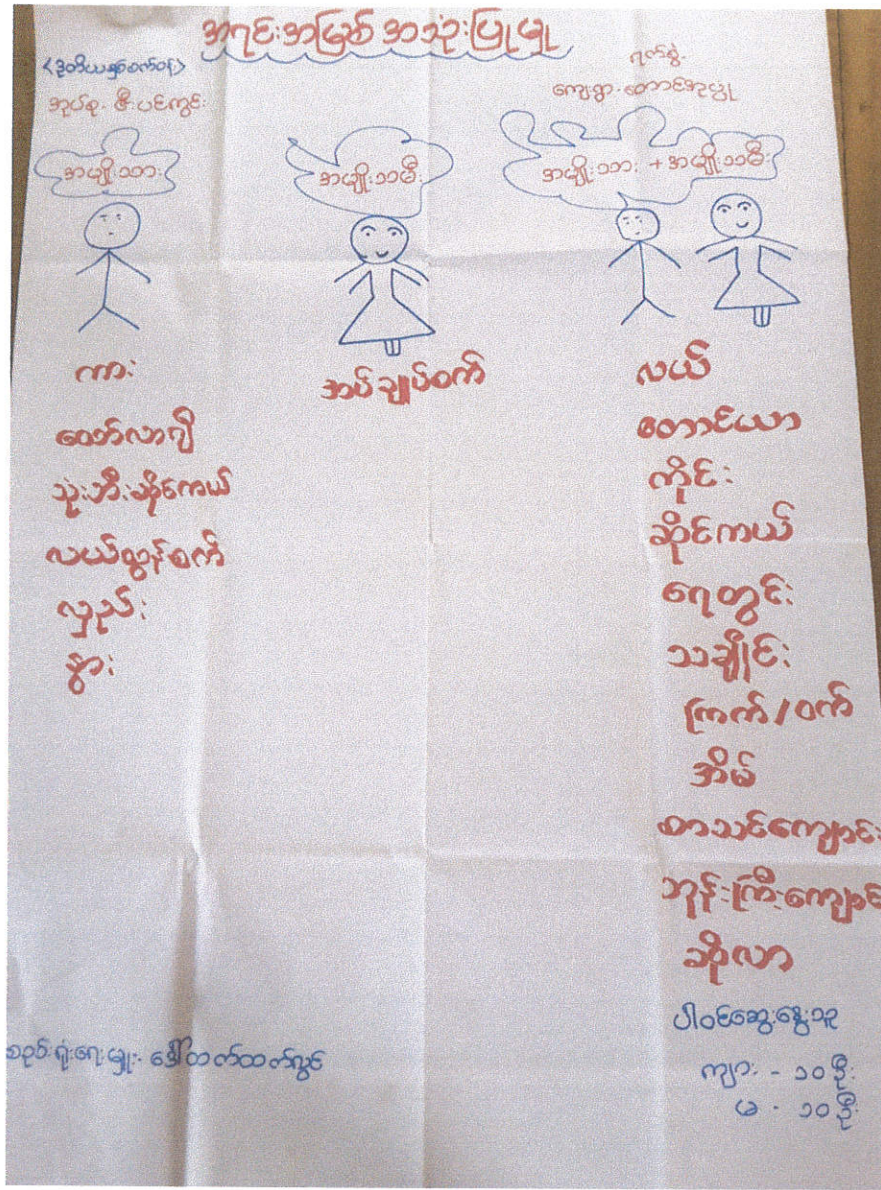 အရင်းအမြစ် အသုံးပြုမှု
<ဒုတိယနှစ်ဝက်ဝန်>
အုပ်စု - ဇီးပင်ကွင်း
ရက်စွဲ -
ကျေးရွာ - တောင်အုပ်လှ
အမျိုးသား
အမျိုးသမီး
အမျိုးသား + အမျိုးသမီး
ကား
ထော်လာဂျီ
သုံးဘီးဆိုင်ကယ်
လယ်ထွန်စက်
လှည်း
နွား
အပ်ချုပ်စက်
လယ်
တောင်ယာ
ကိုင်း
ဆိုင်ကယ်
ရေတွင်း
သချိုင်း
ကြက် / ဝက်
အိမ်
စာသင်ကျောင်း
ဘုန်းကြီးကျောင်း
ဆိုလာ
ပါဝင်ဆွေးနွေးသူ
ကျား - ၁၀ ဦး
မ - ၁၀ ဦး
စည်းရုံးရေးမှူး - ဒေါ်ထက်ထက်လွင်